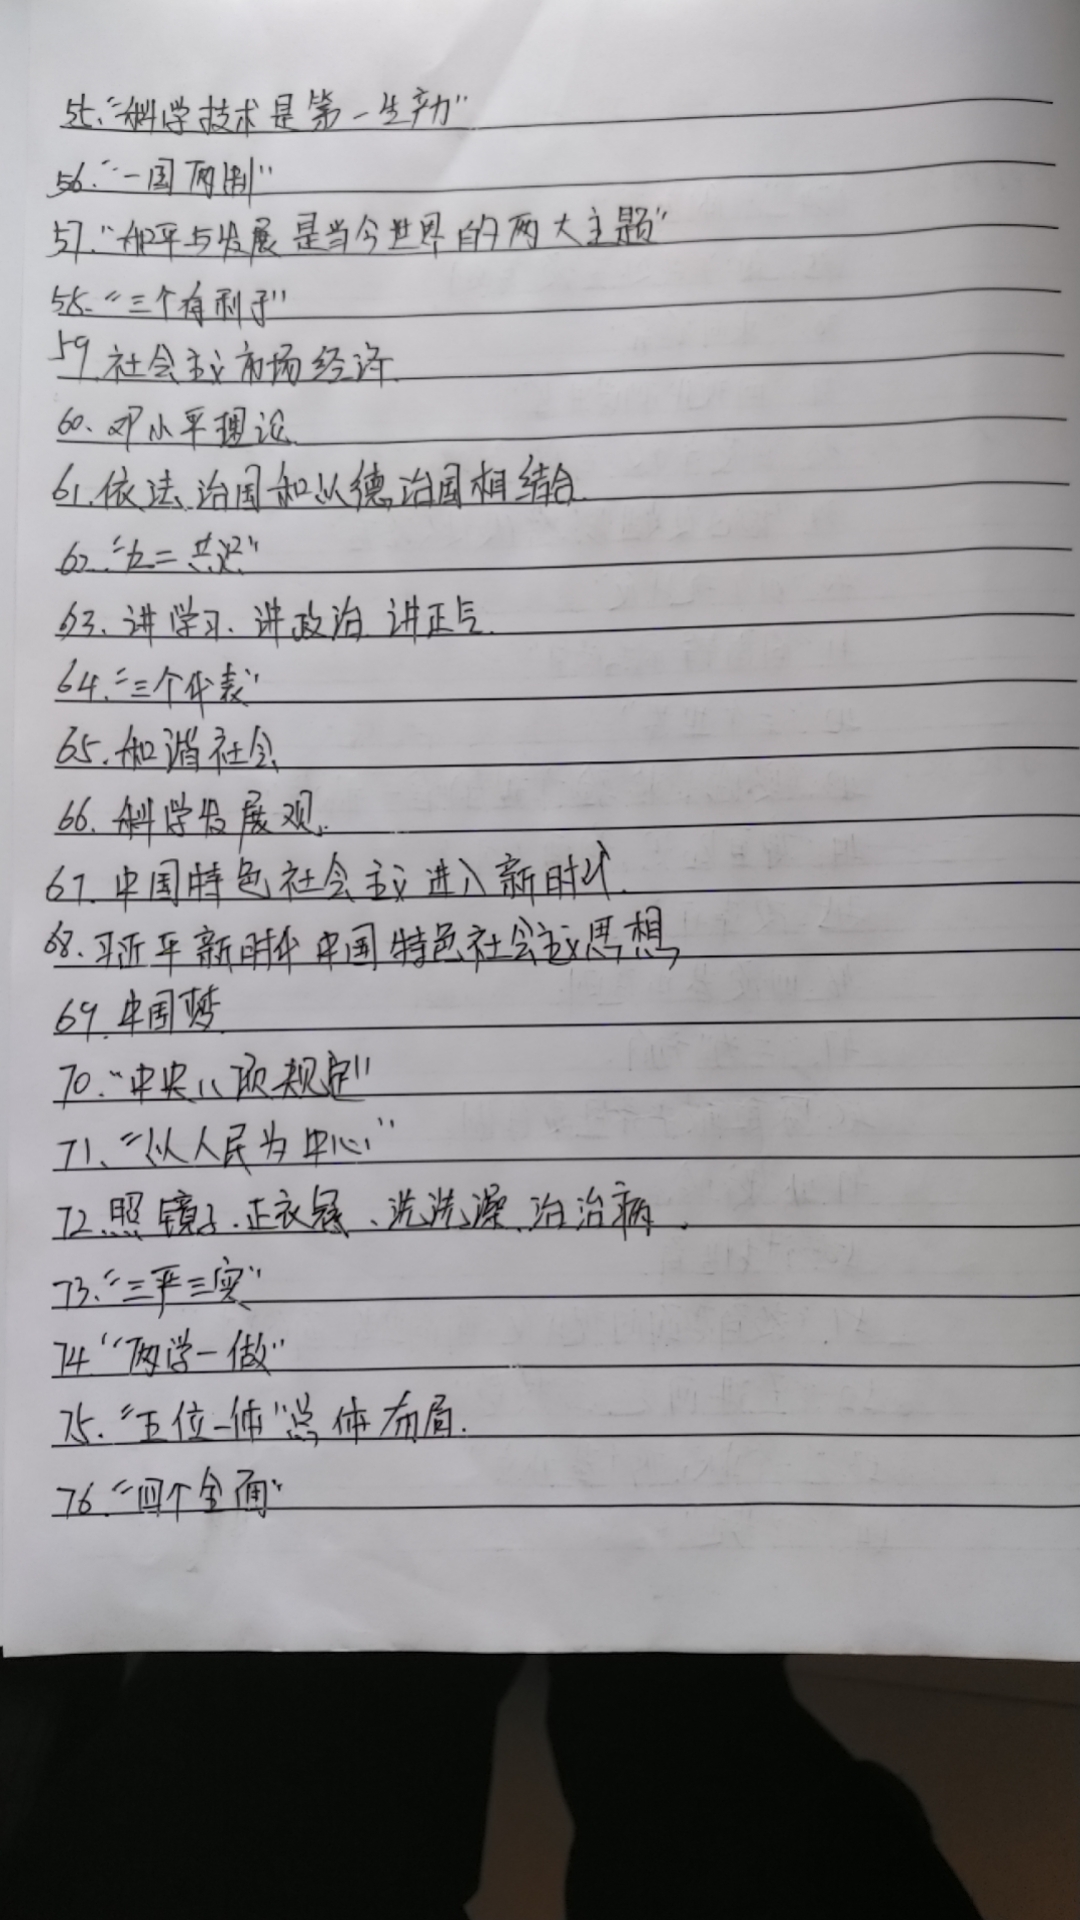 55."科学技术是第一生产力"
56."一国两制"
57."和平与发展是当今世界的两大主题"
58."三个有利于"
59.社会主义市场经济
60.邓小平理论
61.依法治国和以德治国相结合.
62."九二共识"
63.讲学习、讲政治、讲正气.
64."三个代表"
65.和谐社会
66.科学发展观.
67.中国特色社会主义进入新时代.
68.习近平新时代中国特色社会主义思想
69.中国梦
70."中央八项规定"
71."以人民为中心"
72.照镜子、正衣冠、洗洗澡、治治病.
73."三严三实"
74."两学一做"
75."五位一体"总体布局.
76."四个全面"